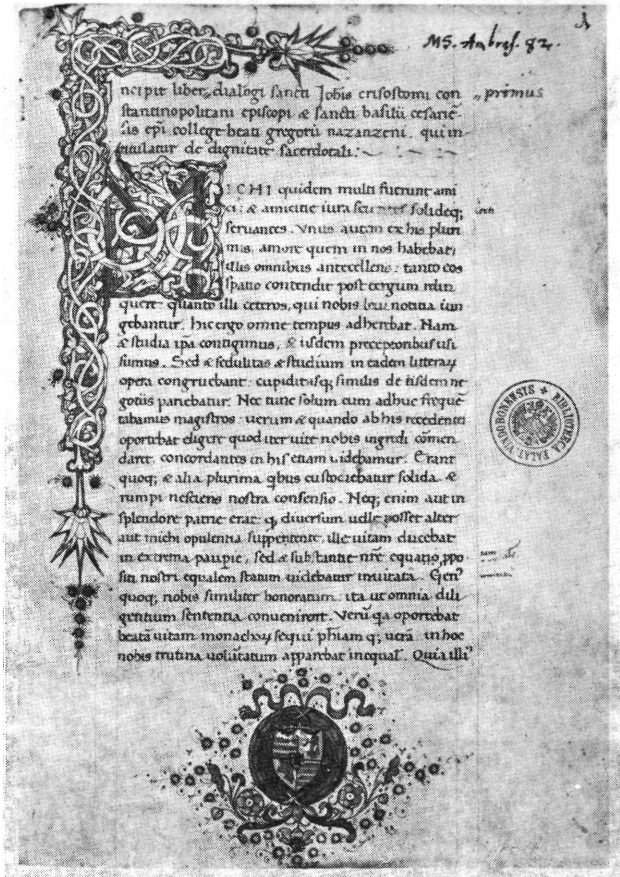 MS. Ambras. 82.
1
ncipit liber dialogi sancti Johis crisostomi con
primus
stantinopolitani episcopi & sancti basilii cesariē
sis epi college beati gregorii nazanzeni. qui in
titulatur de dignitate sacerdotali.
MICHI quidem multi fuerunt ami
ci: & amicitie iura solideq;
seruantes. Vnus autem ex his pluri
mis, amore quem in nos habebat;
illis omnibus antecellens: tanto eos
spatio contendit post tergum relin
quere: quanto illi ceteros, qui nobis leui notitia iun
gebantur. hic ergo omne tempus adherebat. Nam
& studia ipa contigimus, & iisdem preceptoribus usi
sumus. Sed & sedulitas & studium in eadem litteraꝝ
opera congruebant: cupiditasq; similis de eisdem ne
gotiis pariebatur. Nec tunc solum cum adhuc freque
tabamus magistros: uerum & quando ab his recedenti
oportebat eligere quod iter uite nobis ingredi cōmen
daret. concordantes in his etiam uidebamur. Erant
quoq; & alia plurima qbus custodiebatur solida. &
rumpi nesciens nostra consensio. Neq; enim aut in
splendore patrie erat: q diuersum udle posset alter
aut michi opulentia suppetente, ille uitam ducebat
in extrema paupie, sed & substantie nrē equatio, ppo
siti nostri equalem statum uidebatur imitata. Gen⁹
quoq; nobis similiter honoratum. ita ut omnia dili
gentium sententia conuenirent. Verū qa oportebat
beatā uitam monachoꝝ sequi phiam q; uerā. in hoc
nobis trutina uolūtatum apparebat inequal'. Quia illi⁹
BIBLIOTHECA PALAT. VINDOBONENSIS